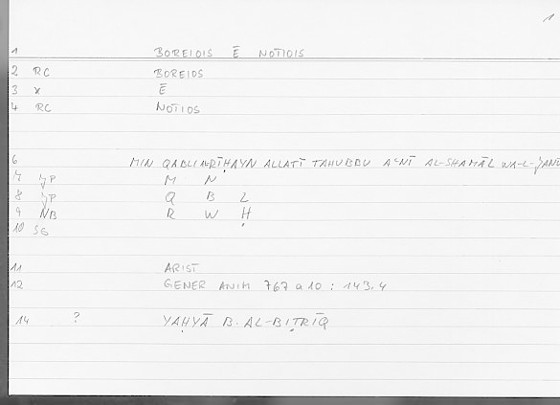 1
1 BOREIOIS Ē NOTIOIS
2 RC BOREIOS
3 x Ē
4 RC NOTIOS
6 MIN QABLI AL-RĪḤAYN ALLATĪ TAHUBBU AʿNĪ AL-SHAMĀL WA-L-ǦANŪ
7 ǦP M N
8 ǦP Q B L
9 NB R W Ḥ
10 SG
11 ARIST
12 GENER ANIM 767 a 10 : 143.4
14 ? YAḤYĀ B. AL-BIṬRĪQ